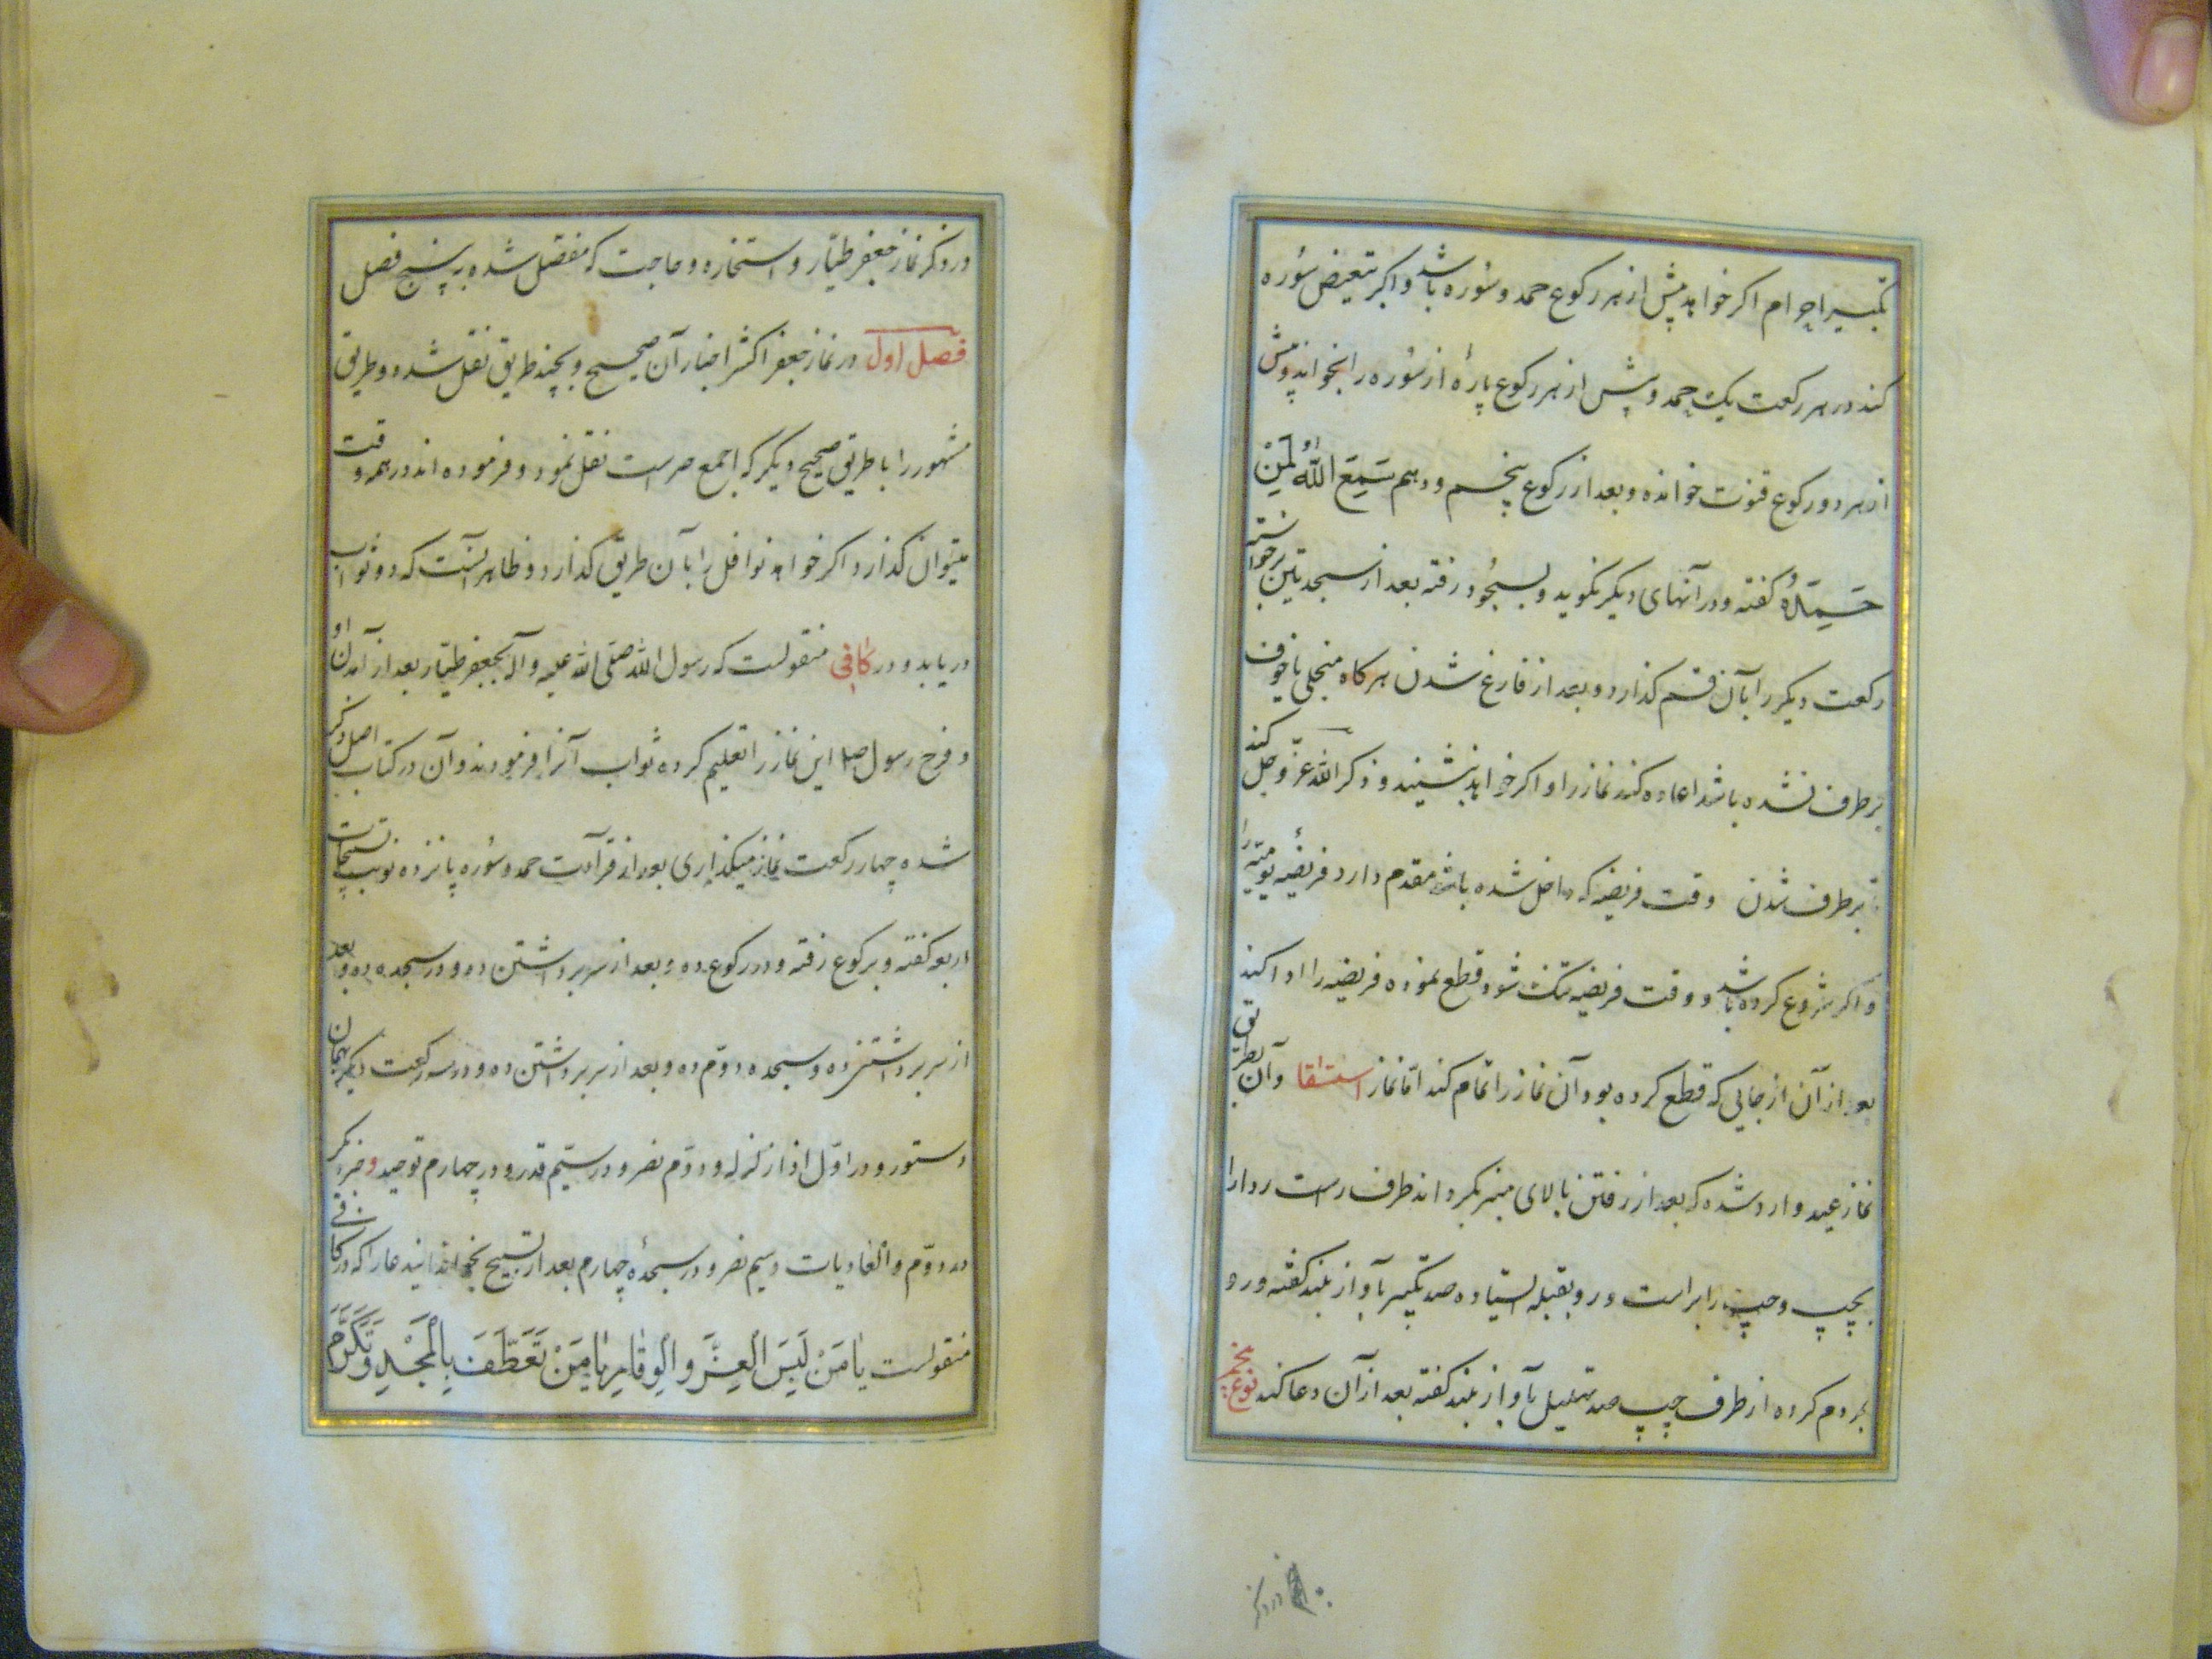 تکبیر احرام اکر خواهد پیش از هر رکوع حمد و سوره باشد و اکر تبعیض سوره
کند در هر رکعت یک حمد و پیش از هر رکوع پارهٔ از سوره را بخواند و پیش
از هر دو رکوع قنوت خوانده و بعد از رکوع پنجم و دهم سَمِعَ اللّٰهُ لِمَنْ
حَمِدَهُ کفته و در آنهای دیکر نکوید و بسجود رفته بعد از سجدتین برخواسته
رکعت دیکر را بآن قسم کذارد و بعد از فارغ شدن هر کاه منجلی یا خوف
برطرف نشده باشد اعاده کند نماز را و اکر خواهد بنشیند و ذکر الله عزّ و جل کند
تا برطرف شدن وقت فریضه که داخل شده باشد مقدم دارد فریضهٔ یومیّه را
و اکر شروع کرده باشد و وقت فریضه تنک شود قطع نموده فریضه را ادا کند
بعد از آن از جایی که قطع کرده بود آن نماز را تمام کند امّا نماز استسقا و آن بطریق
نماز عید وارد شده که بعد از رفتن بالای منبر بکرداند طرف راست ردا را
بچپ و چپ را براست و رو بقبله ایستاده صد تکبیر بآواز بلند کفته و رو
بمردم کرده از طرف چپ صد تهلیل بآواز بلند کفته بعد از آن دعا کند نوع پنجم
در ذکر
در ذکر نماز جعفر طیّار و استخاره و حاجت که مفصّل شده به پنج فصل
فصل اول در نماز جعفر اکثر اخبار آن صحیح و بچند طریق نقل شده و طریق
مشهور را با طریق صحیح دیکر که اجمع صراست نقل نمود و فرموده اند در همه وقت
میتوان کذارد و اکر خواهد نوافل را بآن طریق کذارد و ظاهر آنست که دو ثواب
دریابد و در کافی منقولست که رسول الله صلّی الله علیه و آله بجعفر طیّار بعد از آمدن او
و فرح رسول ص این نماز را تعلیم کرده ثواب آنرا فرمودند و آن در کتاب اصل ذکر
شده چهار رکعت نماز میکذاری بعد از قراءت حمد و سوره پانزده نوبت تسبیحات
اربعه کفته و برکوع رفته و در رکوع ده و بعد از سر برداشتن ده و در سجده ده و بعد
از سر برداشتن ده و سجده دوّم ده و بعد از سر برداشتن ده و در سه رکعت دیکر بهمان
دستور و در اوّل اذا زلزله و دوّم نصر و در سیّم قدر و در چهارم توحید و خبر دیکر
در دوّم و العادیات و سیم نصر و در سجدهٔ چهارم بعد از تسبیح بخواند این دعا را که در کافی
منقولست یٰا مَنْ لَبِسَ الْعِزَّ وَ الْوَقٰارِ یٰا مَنْ تَعَطَّفَ بِالْمَجْدِ وَ تَکَرَّمَ